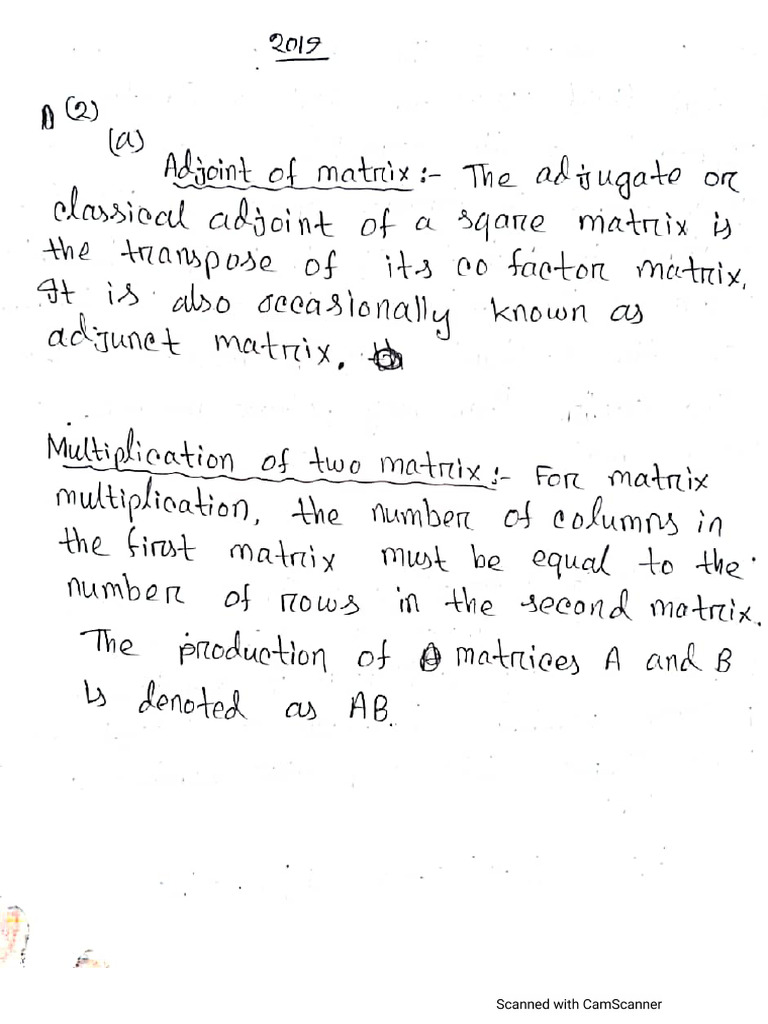 2019
(2)
(a)
Adjoint of matrix :- The adjugate or
classical adjoint of a sqare matrix is
the transpose of its co factor matrix.
It is also occasionally known as
adjunct matrix.
Multiplication of two matrix :- For matrix
multiplication, the number of columns in
the first matrix must be equal to the
number of rows in the second matrix.
The production of matrices A and B
is denoted as AB.
Scanned with CamScanner